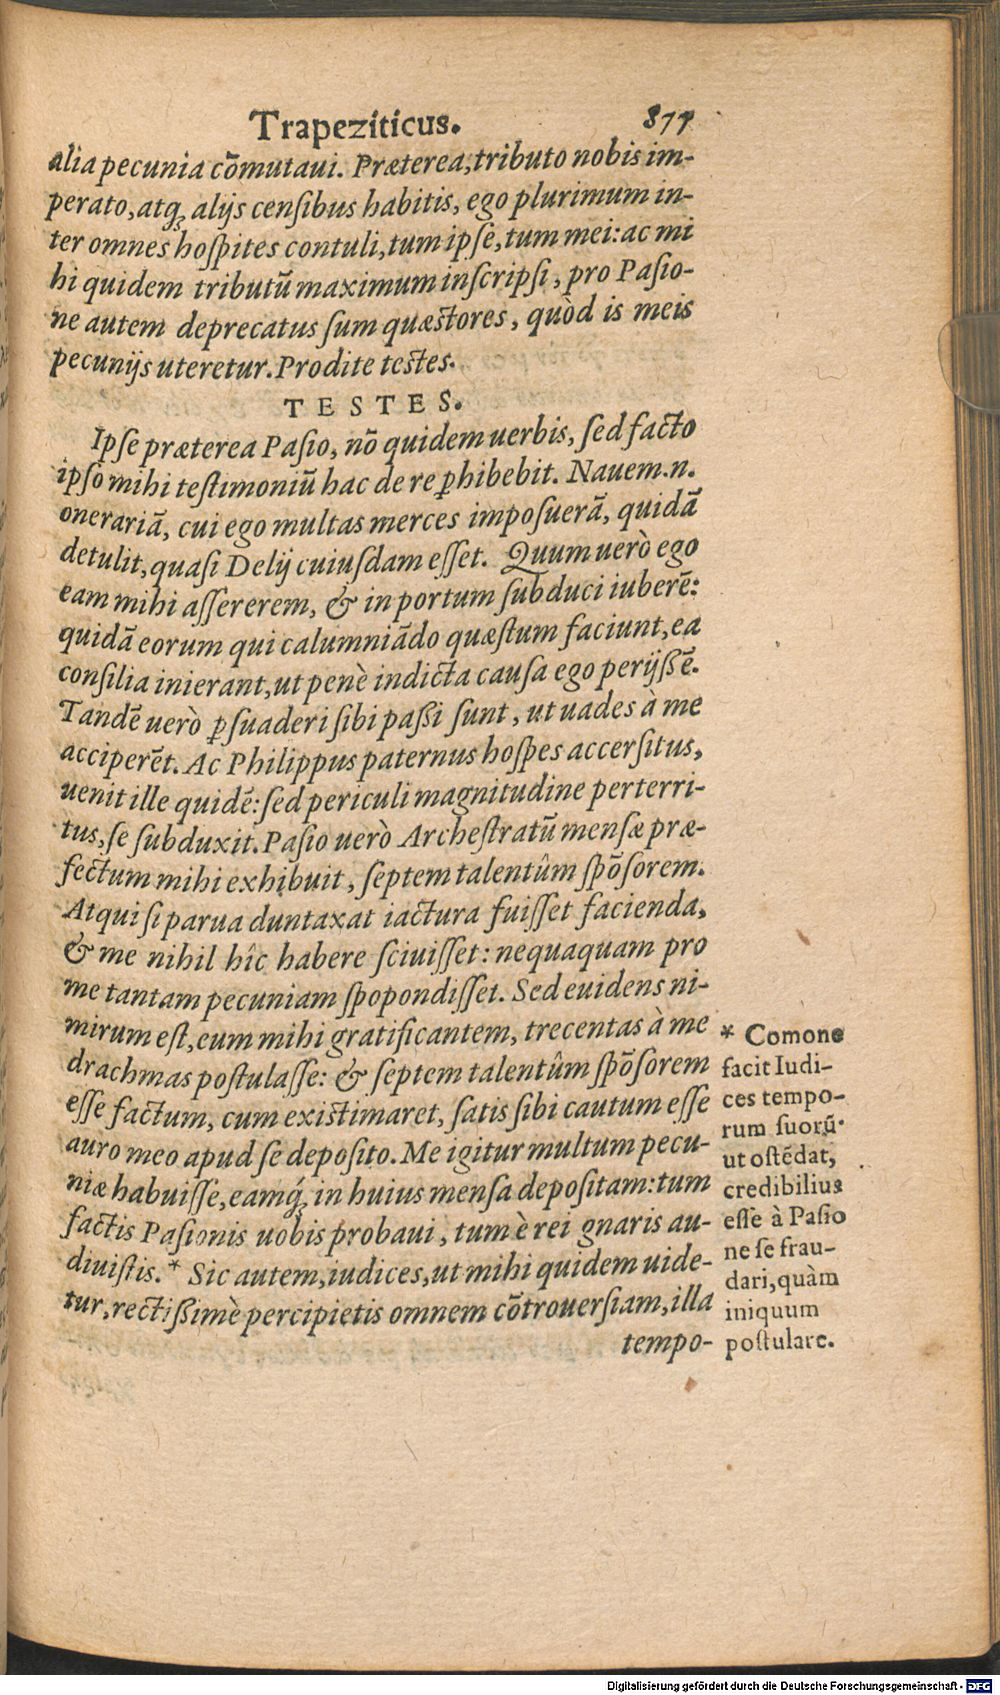 Trapeziticus. 877
alia pecunia cōmutaui. Præterea, tributo nobis im-
perato, atq; alijs censibus habitis, ego plurimum in-
ter omnes hoſpites contuli, tum ipſe, tum mei: ac mi
hi quidem tributū maximum inſcripſi, pro Paſio-
ne autem deprecatus ſum quæſtores, quòd is meis
pecunijs uteretur. Prodite teſtes.
TESTES.
Ipſe præterea Paſio, nō quidem uerbis, ſed facto
ipſo mihi teſtimoniū hac de re ꝑhibebit. Nauem.n.
onerariā, cui ego multas merces impoſuerā, quidā
detulit, quaſi Delij cuiuſdam eſſet. Quum uerò ego
eam mihi aſſererem, & in portum ſubduci iuberē:
quidā eorum qui calumniādo quæſtum faciunt, ea
conſilia inierant, ut penè indicta cauſa ego perijſſē.
Tandē uerò ꝑſuaderi ſibi paſſi ſunt, ut uades à me
acciperēt. Ac Philippus paternus hoſpes accerſitus,
uenit ille quidē: ſed periculi magnitudine perterri-
tus, ſe ſubduxit. Paſio uerò Archeſtratū menſæ præ-
fectum mihi exhibuit, ſeptem talentûm ſpōſorem.
Atqui ſi parua duntaxat iactura fuiſſet facienda,
& me nihil hîc habere ſciuiſſet: nequaquam pro
me tantam pecuniam ſpopondiſſet. Sed euidens ni-
mirum eſt, eum mihi gratificantem, trecentas à me
drachmas poſtulaſſe: & ſeptem talentûm ſpōſorem
eſſe factum, cum exiſtimaret, ſatis ſibi cautum eſſe
auro meo apud ſe depoſito. Me igitur multum pecu-
niæ habuiſſe, eamq́; in huius menſa depoſitam: tum
factis Paſionis uobis probaui, tum è rei gnaris au-
diuiſtis.* Sic autem, iudices, ut mihi quidem uide-
tur, rectiſſimè percipietis omnem cōtrouerſiam, illa
tempo-
* Comone
facit Iudi-
ces tempo-
rum ſuorū.
ut oſtēdat,
credibilius
eſſe à Paſio
ne ſe frau-
dari, quàm
iniquum
poſtulare.
Digitalisierung gefördert durch die Deutsche Forschungsgemeinschaft - DFG